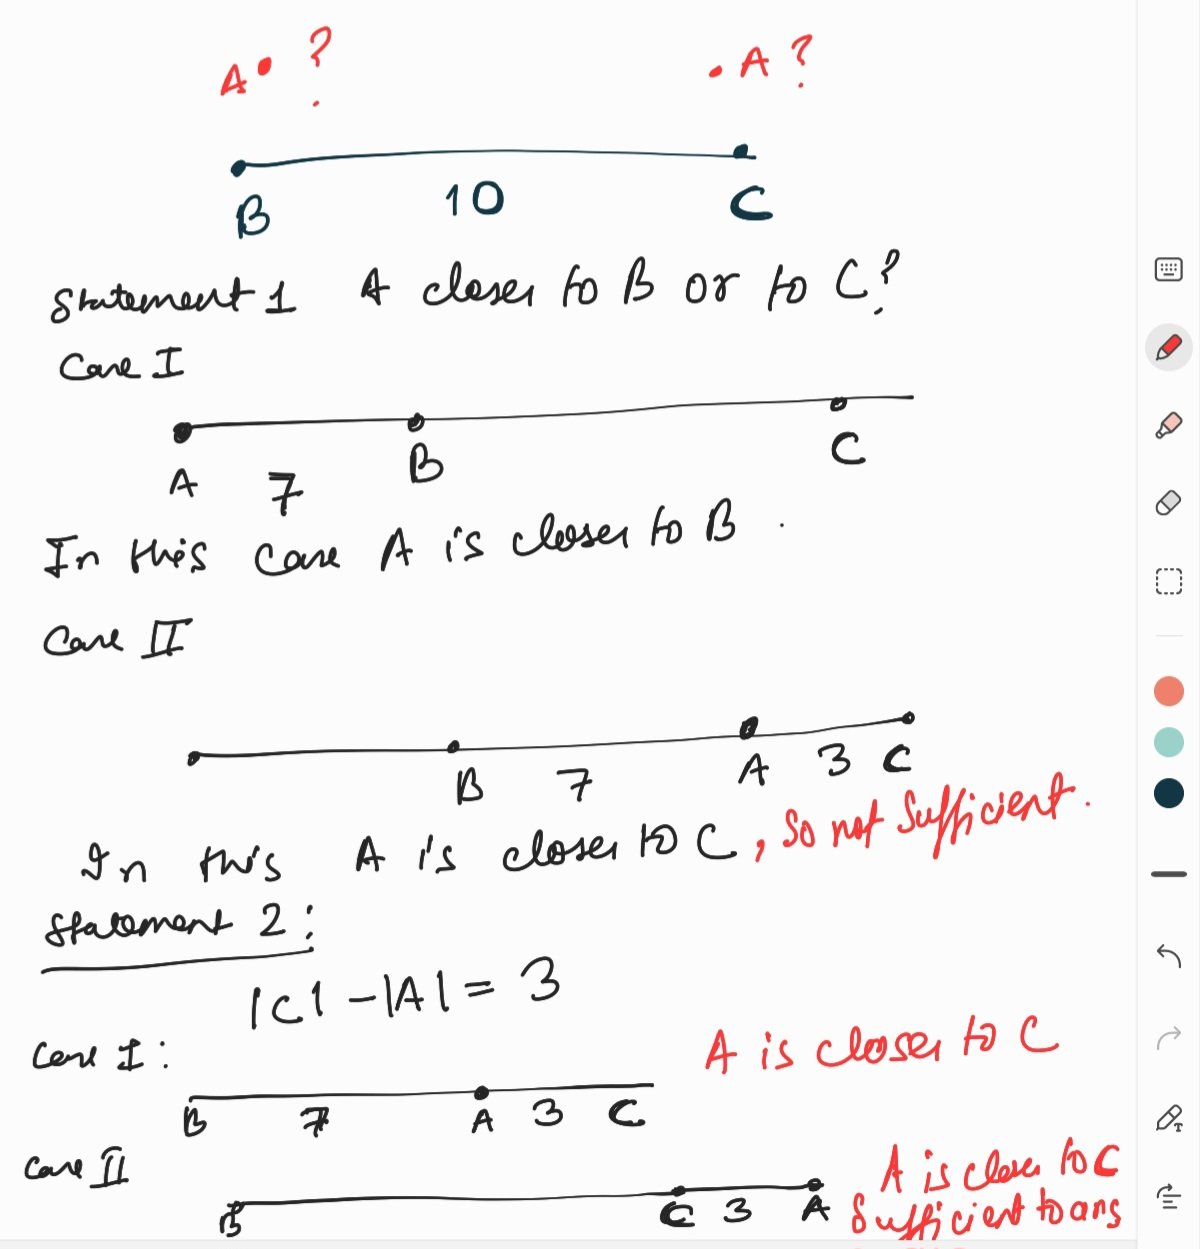 A • ? • A ?
B 10 C
Statement 1 A closer to B or to C?
Case I
A 7 B C
In this case A is closer to B.
Case II
B 7 A 3 C
In this A is closer to C, so not sufficient.
Statement 2:
|C| - |A| = 3
Case I: A is closer to C
B 7 A 3 C
Case II A is closer to C
B C 3 A Sufficient to ans